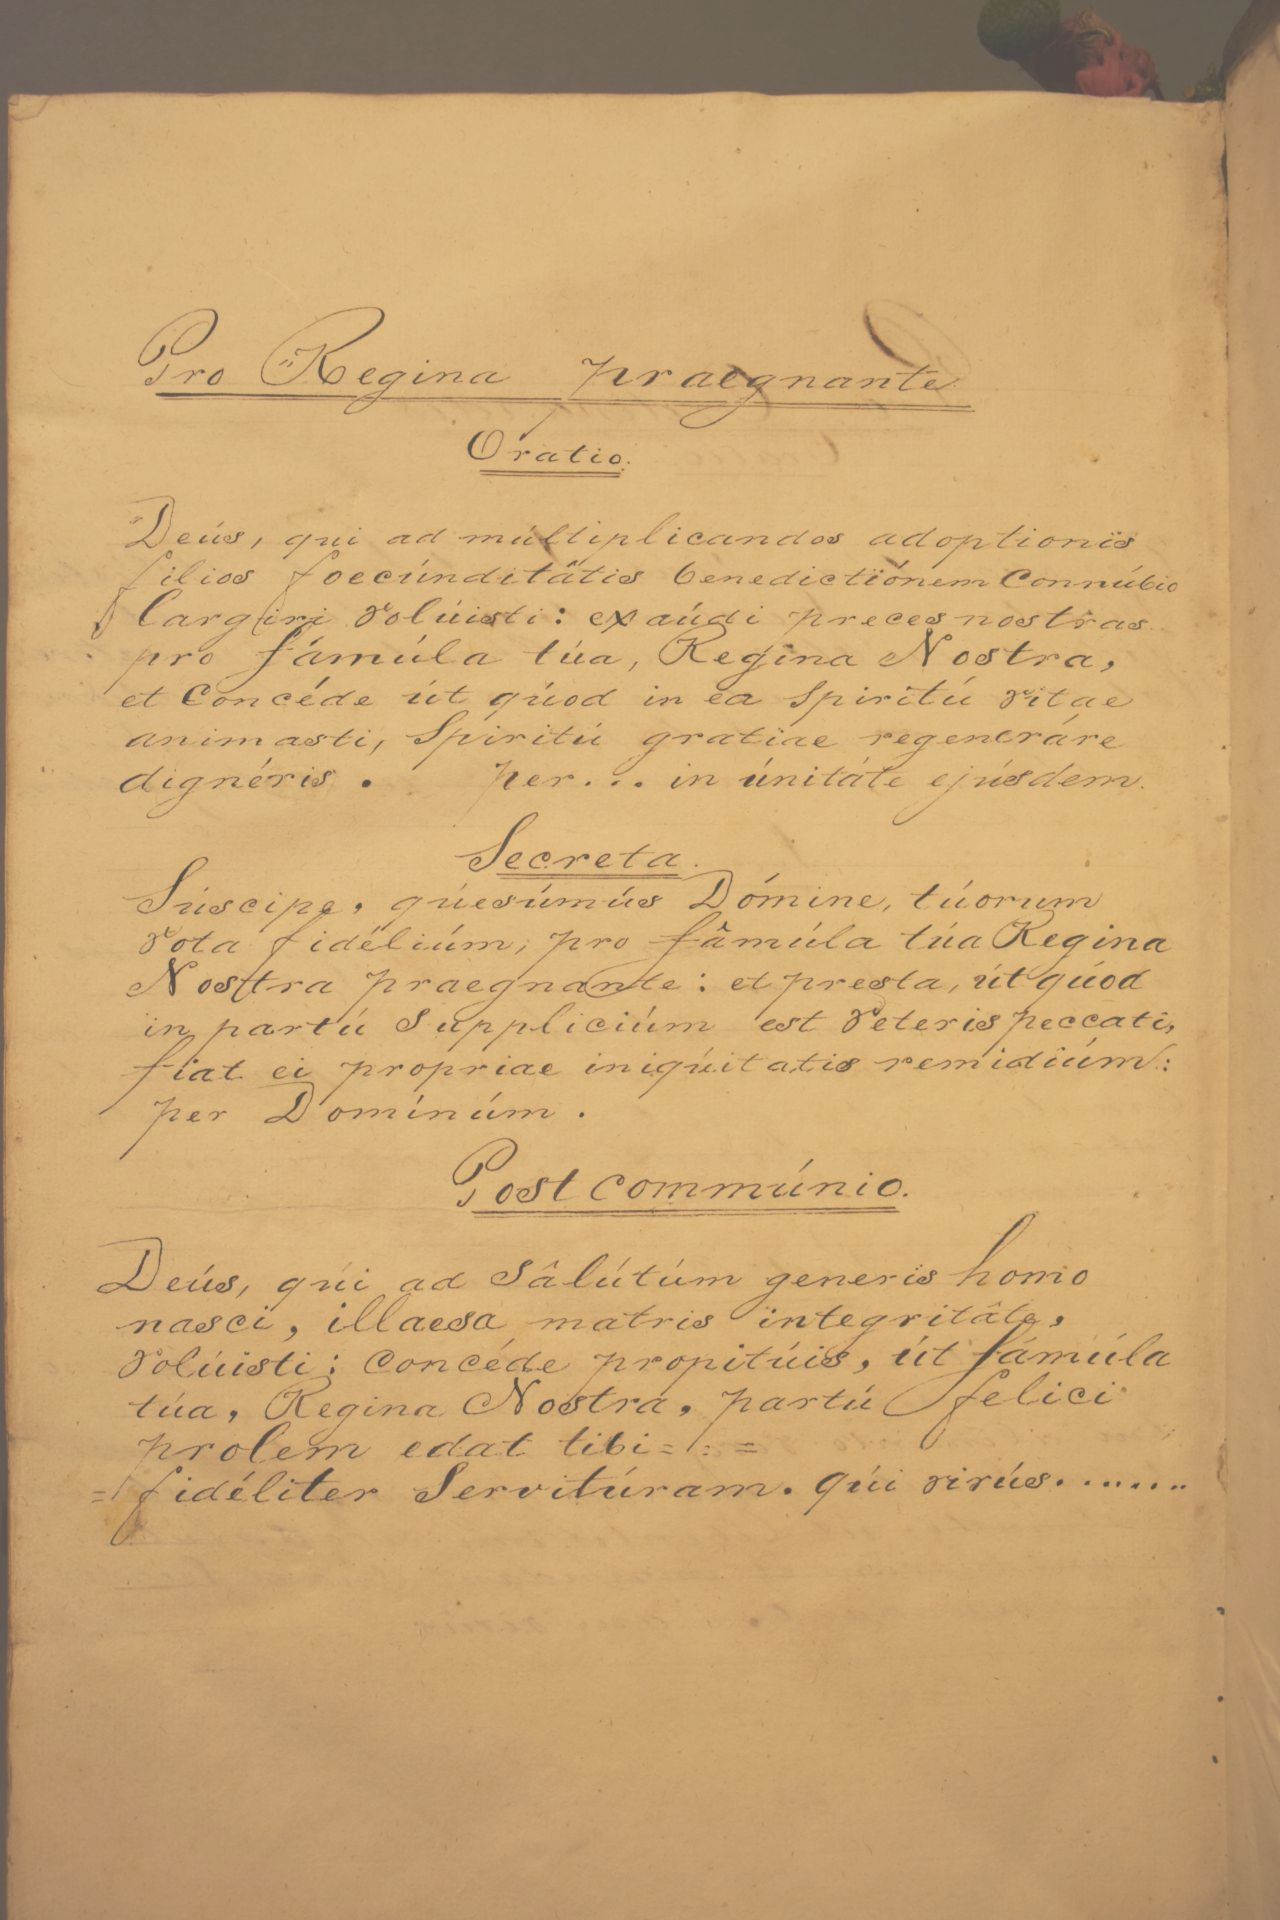 Pro Regina praegnante
Oratio.
Deús, qui ad múltiplicandos adoptionis
filios foecúnditâtis benedictiónem Connúbio
largiri volúisti: exaúdi preces nostras
pro fámúla túa, Regina Nostra,
et Concéde út qúod in ea Spiritú vitae
animasti, Spiritú gratiae regeneráre
dignéris. per... in únitáte ejúsdem.
Secreta.
Súscipe, qúesúmús Dómine, túorum
vota fidéliúm, pro fâmúla túa Regina
Nostra praegnante: et presta, út qúod
in partú Suppliciúm est veteris peccati,
fiat ei propriae iniqúitatis remidiúm:
per Dominúm.
Postcommúnio.
Deús, qúi ad Sâlútúm generis homo
nasci, illaesa matris integritâte,
volúisti: Concéde propitúis, út fámúla
túa, Regina Nostra, partú felici
prolem edat tibi = : =
= fidéliter Servitúram. Qúi virús.......